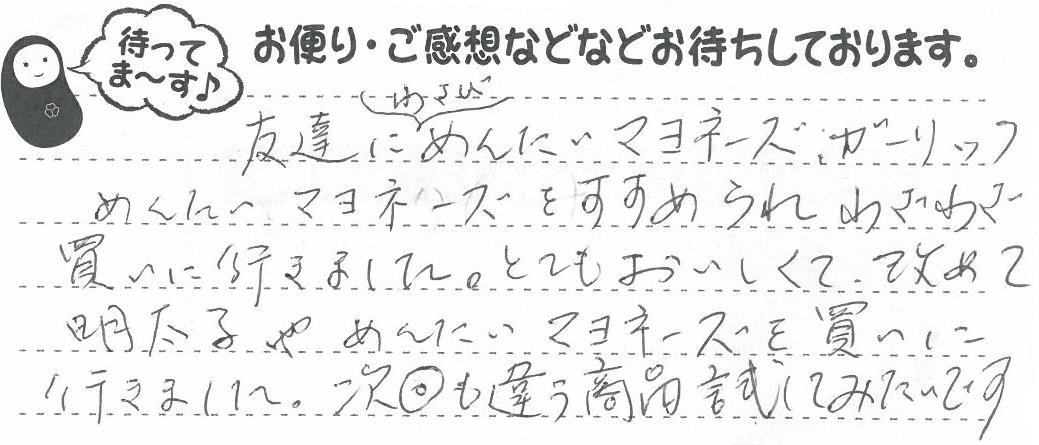 待って
ま～す♪
お便り・ご感想などなどお待ちしております。
わさび
友達にめんたいマヨネーズ、ガーリック
めんたいマヨネーズをすすめられ わざわざ
買いに行きました。とてもおいしくて、改めて
明太子やめんたいマヨネーズを買いに
行きました。次回も違う商品試してみたいです